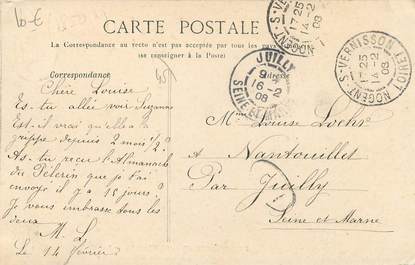 10-€
CARTE POSTALE
La Correspondance au recto n'est pas acceptée par tous les pays étrangers
(se renseigner à la Poste)
Correspondance
Adresse
451
NOGENT-S-VERNISSON
17-25
14-2
08
NOGENT-S-VERNISSON LOIRET
17-25
14-2
08
JUILLY
9
16-2
08
SEINE ET MARNE
Chère Louise
Es-tu allée voir Suzanne
Est-il vrai qu'elle a la
grippe depuis 2 mois 1/2 ?
As-tu reçu l'Almanach
du Pèlerin que j'ai
envoyé il y a 15 jours ?
Je vous embrasse tous les
deux
M. L
Le 14 février
Mme Louise Loehr
A Nantouillet
Par Juilly
Seine et Marne